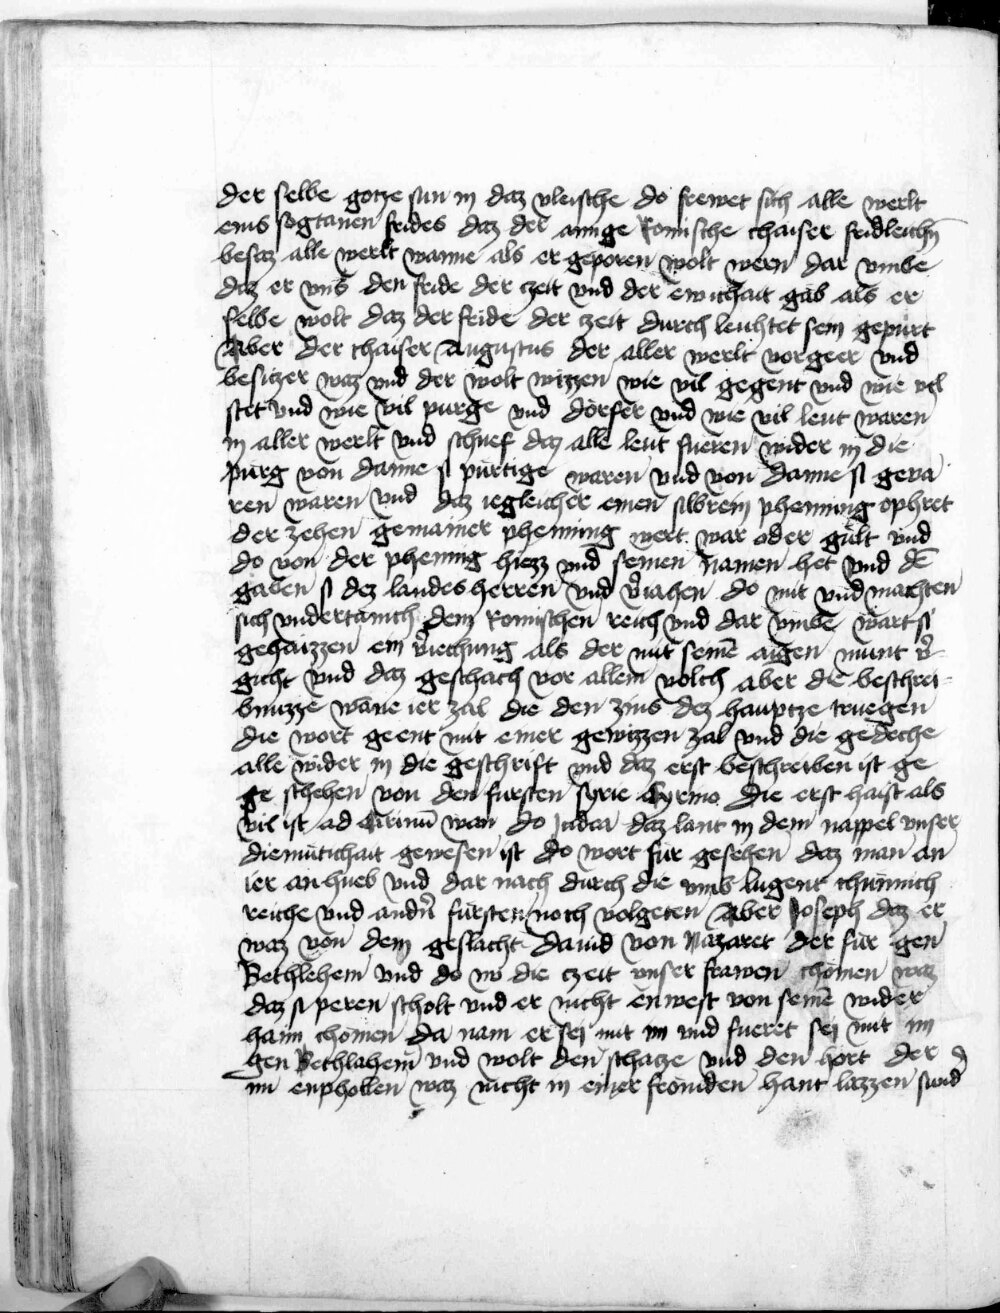 der selbe gotze sun in daz vleische do frewet sich alle werlt
eins sogtanen frides daz der ainige Romische chaiser fridleichn̄
besaz alle werlt wanne als er geporen wolt wern dar vmbe
daz er vns den fride der czeit vnd der ewichait gab als er
selbe wolt daz der fride der czeit durch leuchtet sein gepurt
Aber der chaiser Augustus der aller werlt vorgeer vnd
besitzer waz vnd der wolt wizzen wie vil gegent vnd wie vil
stet vnd wie vil purge vnd dörfer vnd wie vil leut waren
in aller werlt vnd schuef daz alle leut fueren wider in die
purg von danne si pürtige waren vnd von danne si gepa
ren waren vnd daz iegleicher einen silbrein phenning ophret
der zehen gemainer phenning wert war oder gült vnd
do von der phening hiezz vnd seinen Namen het vnd dē
gaben si dez landes herren vnd v̄iahen do mit vnd machten
sich vndertanich dem Romischen reich vnd dar vmbe wart si
gehaizzen ein v̄iechung als der mit seinē aigen munt v̄
gicht vnd daz geschach vor allem volch aber die beschrei
bnuzze wane ier zal die den zins dez hauptze truegen
die wort geent mit einer gewizzen zal vnd die gedeche
alle wider in die geschrift vnd daz erst beschreiben ist ge
ge schehen von den fursten syrie Cyrino Die erst haist als
vil ist ad Cirinū wan do Judea daz lant in dem nappel vnser
diemütichait gewesen ist do wort für gesehen daz man an
ier an hueb vnd dar nach durch die vmb lugent chünnich
reiche vnd andn̄ fürsten noch volgeten Aber Joseph daz er
waz von dem geslacht dauid von Nazaret der für gen
Bethlehem vnd do nv die czeit vnser frawen chomen waz
daz si peren scholt vnd er nicht enwest von seinē wider
haim chomen da nam er sei mit im vnd fueret sei mit im
gen Bethlahem vnd wolt den schatze vnd den hort der
im enpholhen waz nicht in einer fromden hant lazzen sund̄